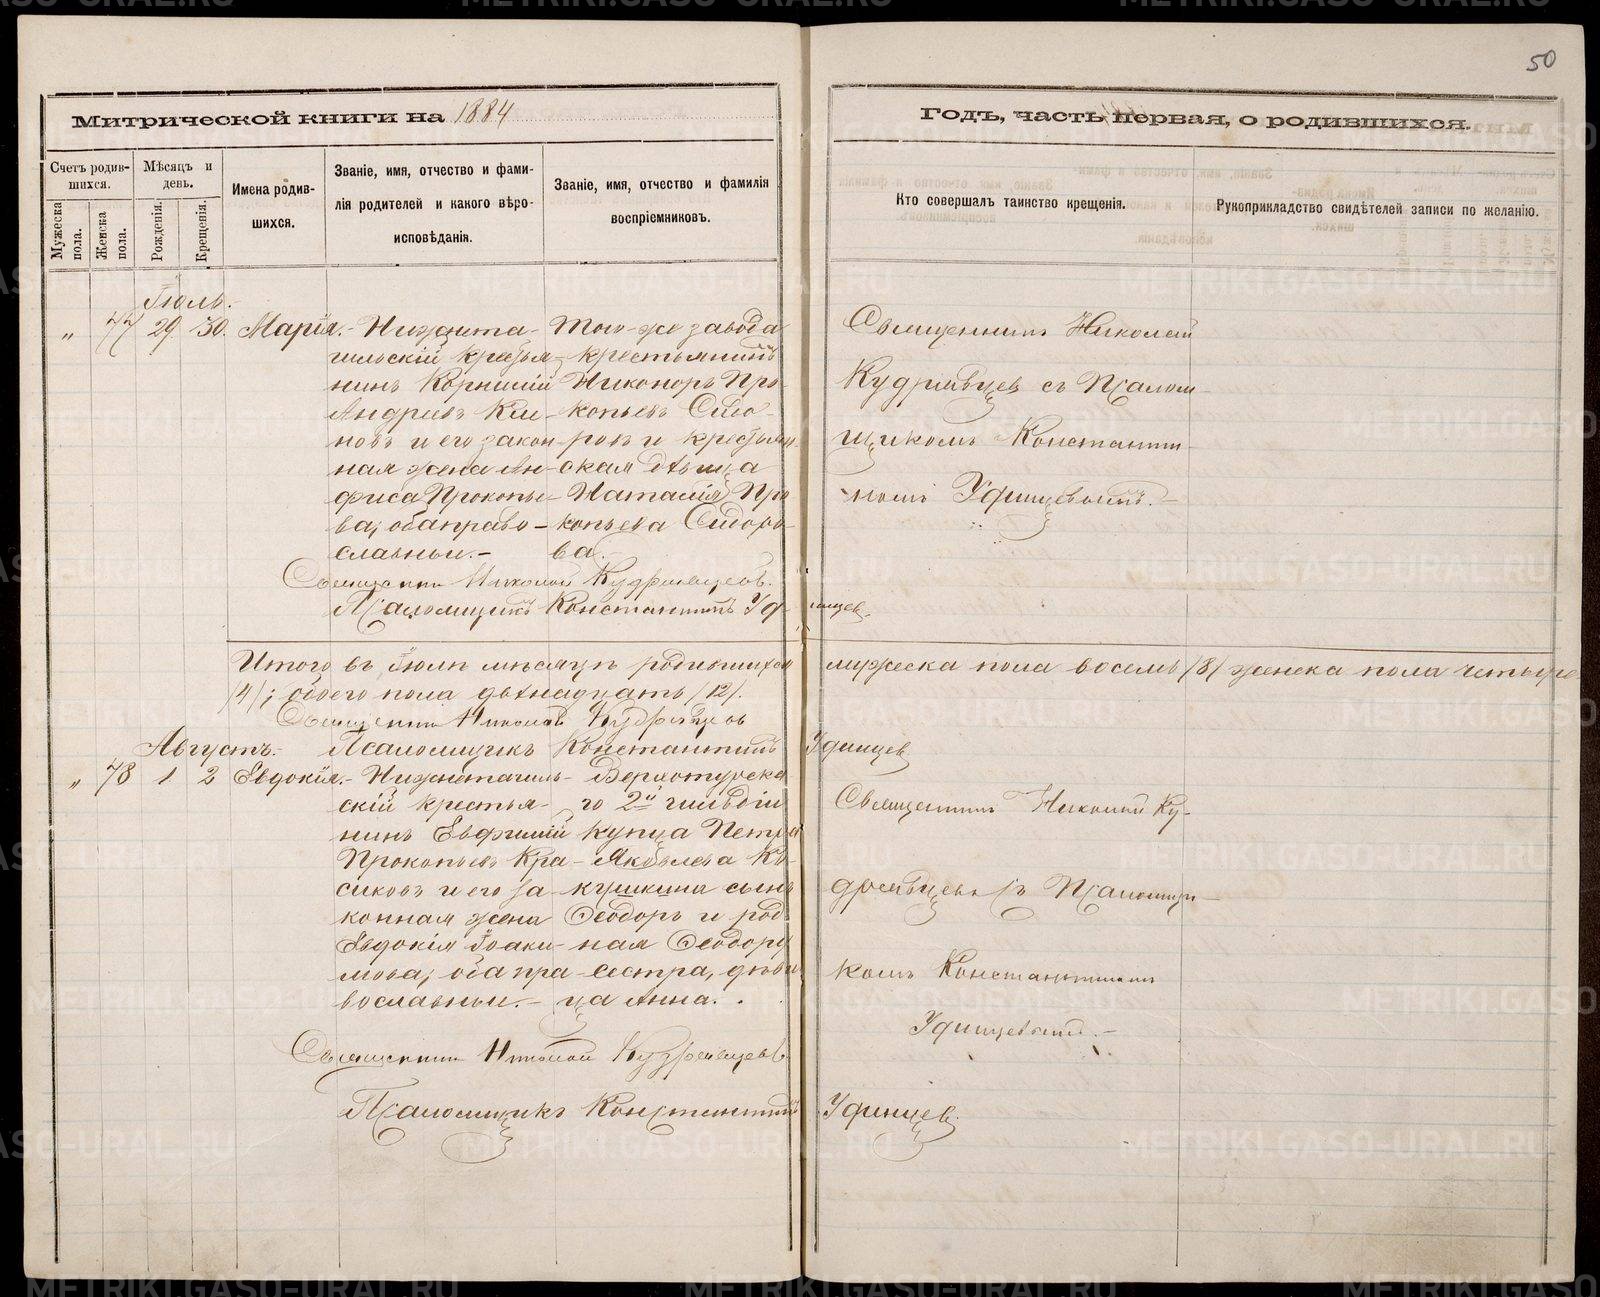 50
Митрической книги на 1884
Годъ, часть первая, о родившихся.
Счетъ родив-
шихся.
Мужеска пола.
Женска пола.
Мѣсяцъ и
день.
Рожденія.
Крещенія.
Имена родив-
шихся.
Званіе, имя, отчество и фами-
лія родителей и какого вѣро-
исповѣданія.
Званіе, имя, отчество и фамилія
воспріемниковъ.
Кто совершалъ таинство крещенія.
Рукоприкладство свидѣтелей записи по желанію.
Іюль.
„ 77 29 30. Марія.-
Нижнета-
гильскій крестья-
нинъ Корнилій
Андреевъ Кли-
новъ и его закон-
ная жена Ан-
фиса Прокопье-
ва; оба право-
славныи.-
Того-же завода
крестьянинъ
Никоноръ Про-
копьевъ Сидо-
ровъ и крестьян-
ская дѣвица
Наталія Про
копьева Сидоро-
ва.
Священникъ Николай
Кудрявцевъ съ Псалом-
щикомъ Константи-
номъ Удинцевымъ.-
Священникъ Николай Кудрявцевъ.
Псаломщикъ Константинъ Удинцев.
Итого въ Іюлѣ мѣсяцѣ родившихся мужеска пола восемь /8/ женска пола четыре
/4/; обоего пола двѣнадцать /12/.
Священникъ Николай Кудрявцевъ
Псаломщикъ Константинъ Удинцев
Августъ.-
„ 78 1 2 Евдокія.-
Нижнетагиль-
скій крестья-
нинъ Евфимій
Прокопьевъ Кра-
сиковъ и его за
конная жена
Евдокія Іоаки-
мова; оба пра-
вославныи.-
Верхотурска
го 2й гильдіи
купца Петра
Яковлева Ко-
кушкина сынъ
Ѳеодоръ и род
ная Ѳеодору
сестра, дѣви
ца Анна.
Священникъ Николай Ку-
дрявцевъ съ Псаломщи-
комъ Константиномъ
Удинцевымъ.-
Священникъ Николай Кудрявцевъ
Псаломщикъ Константинъ Удинцев.
METRIKI.GASO-URAL.RU